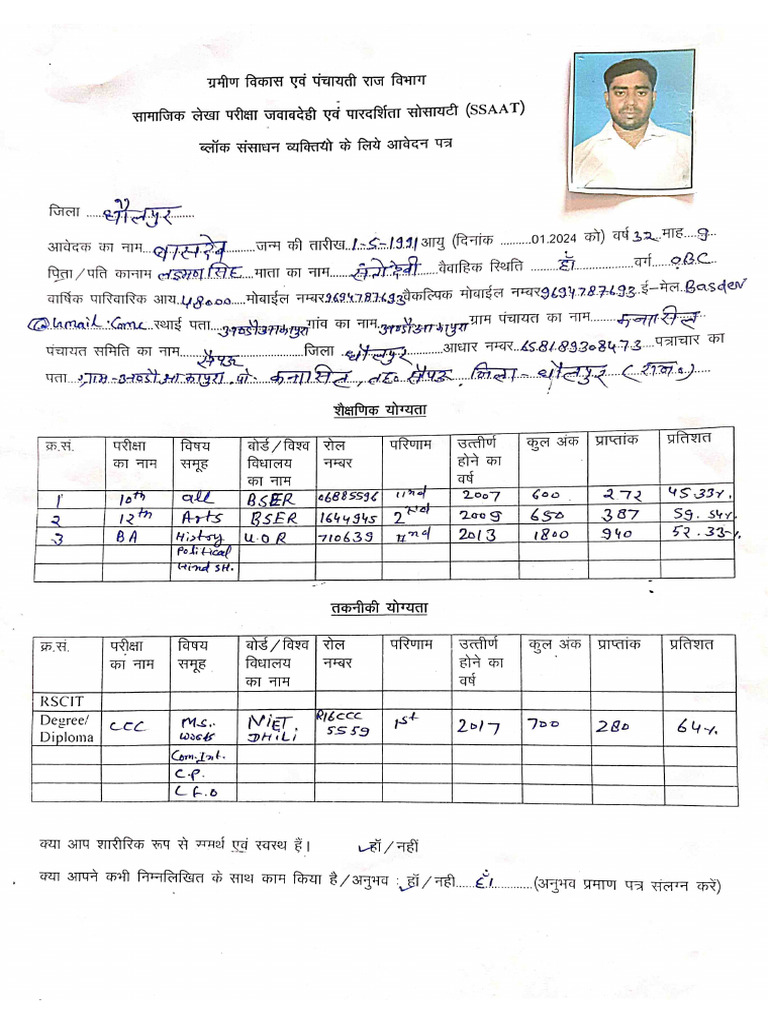 ग्रमीण विकास एवं पंचायती राज विभाग
सामाजिक लेखा परीक्षा जवाबदेही एवं पारदर्शिता सोसायटी (SSAAT)
ब्लॉक संसाधन व्यक्तियो के लिये आवेदन पत्र
जिला धौलपुर
आवेदक का नाम बासदेव जन्म की तारीख 1-5-1991 आयु (दिनांक ..........01.2024 को) वर्ष 32 माह 9
पिता/पति कानाम माता का नाम वैवाहिक स्थिति हाँ वर्ग O.B.C
वार्षिक पारिवारिक आय 48000 मोबाईल नम्बर 9694787693 वैकल्पिक मोबाईल नम्बर 9694787693 ई-मेल Basdev
स्थाई पता गांव का नाम ग्राम पंचायत का नाम कनासील
पंचायत समिति का नाम सैंपऊ जिला धौलपुर आधार नम्बर 658189308473 पत्राचार का
पता ग्राम- पो. कनासील, तह. सैंपऊ जिला- धौलपुर (राज.)
शैक्षणिक योग्यता
क्र.सं. परीक्षा का नाम विषय समूह बोर्ड/विश्व विधालय का नाम रोल नम्बर परिणाम उर्त्तीण होने का वर्ष कुल अंक प्राप्तांक प्रतिशत
1 10th all BSER 06885596 IInd 2007 600 272 45.33%
2 12th Arts BSER 1644945 2nd 2009 650 387 59.54%
3 BA History U.O.R 710639 IInd 2013 1800 940 52.33%
Political
Hind SH.
तकनीकी योग्यता
क्र.सं. परीक्षा का नाम विषय समूह बोर्ड/विश्व विधालय का नाम रोल नम्बर परिणाम उर्त्तीण होने का वर्ष कुल अंक प्राप्तांक प्रतिशत
RSCIT
Degree/Diploma CCC M.S. NIET DHILI R16CCC 5559 1st 2017 700 280 64%
Com.Int.
C.P.
C.F.O
क्या आप शारीरिक रूप से समर्थ एवं स्वस्थ हैं। हॉ/नहीं
क्या आपने कभी निम्नलिखित के साथ काम किया है/अनुभव : हॉ/नही हाँ (अनुभव प्रमाण पत्र संलग्न करें)